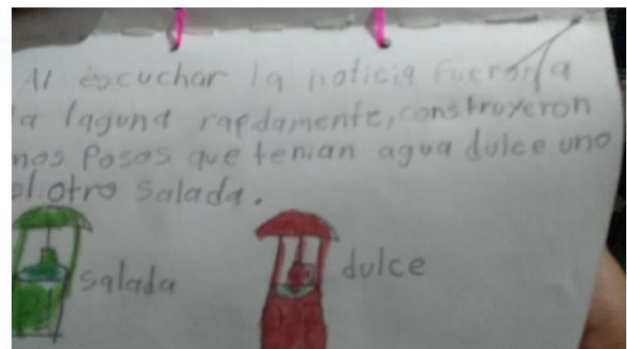 Al escuchar la noticia fueron a
la laguna rapdamente, construyeron
nos Posos que tenian agua dulce uno
el otro Salada.
salada
dulce